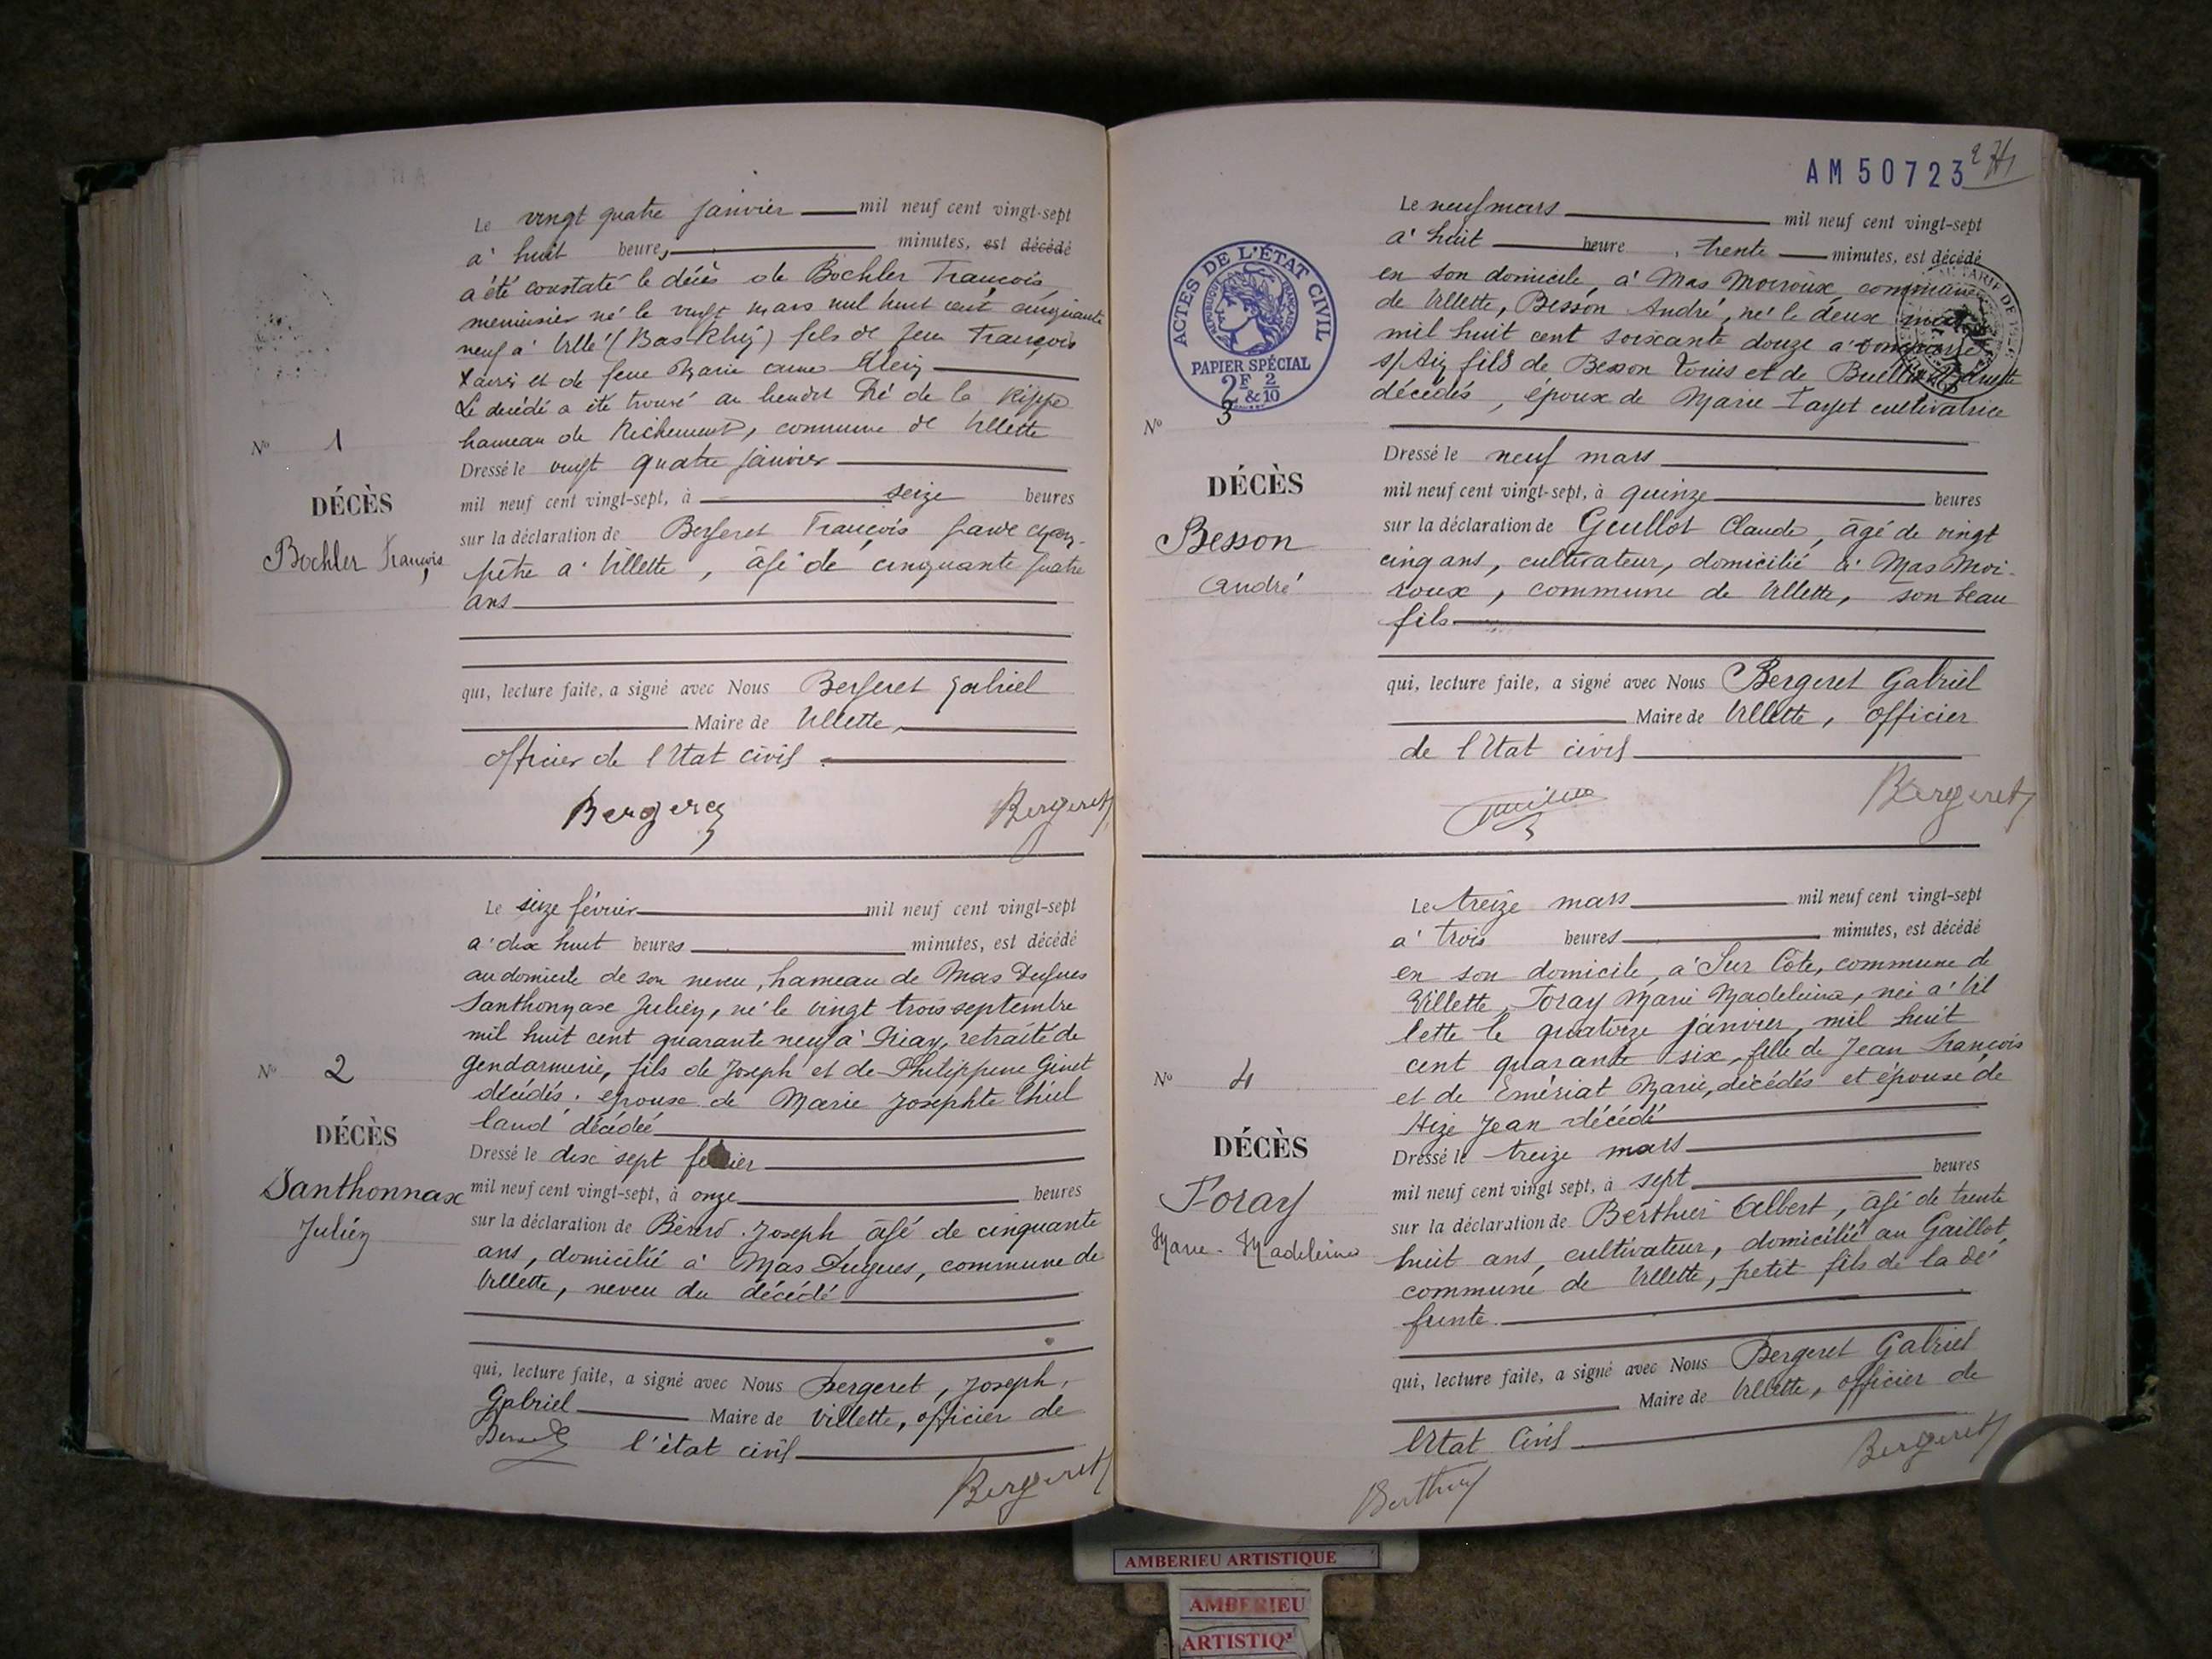 Le vingt quatre janvier mil neuf cent vingt-sept
a' huit heures, minutes, est décédé
a été constaté le décès de Bochler François,
menuisier né le vingt mars mil huit cent cinquante
neuf à Villé (Bas-Rhin) fils de feu François
Xavier et de feue Marie anne Klein
Le décédé a été trouvé au lieudit Pré de la Rippe
hameau de Richemont, commune de Villette
No 1
DÉCÈS
Bochler François
Dressé le vingt quatre janvier
mil neuf cent vingt-sept, à seize heures
sur la déclaration de Bergeret François garde cham-
pêtre a' Villette, âgé de cinquante quatre
ans
qui, lecture faite, a signé avec Nous Bergeret Gabriel
Maire de Villette,
officier de l'Etat civil
Bergeret Bergeret
Le seize février mil neuf cent vingt-sept
a' dix huit heures minutes, est décédé
au domicile de son neveu, hameau de Mas Dugues
Santhonnax Julien, né le vingt trois septembre
mil huit cent quarante neuf à Priay, retraité de
gendarmerie, fils de Joseph et de Philippine Ginet
décédés. époux de Marie Josephte
land décédée
No 2
DÉCÈS
Santhonnax
Julien
Dressé le dix sept février
mil neuf cent vingt-sept, à onze heures
sur la déclaration de Joseph âgé de cinquante
ans, domicilié à Mas Dugues, commune de
Villette, neveu du décédé
qui, lecture faite, a signé avec Nous Bergeret, Joseph,
Gabriel Maire de Villette, officier de
l'état civil
Bergeret
AM 50723
271
ACTES DE L'ÉTAT CIVIL
RÉPUBLIQUE FRANÇAISE
PAPIER SPÉCIAL
2F & 2/10
Le neuf mars mil neuf cent vingt-sept
a' huit heure, trente minutes, est décédé
en son domicile, à Mas Moiroux commune
de Villette, Besson André, né le deux
mil huit cent soixante douze a'
s/Ain fils de Besson Louis et de
décédés, époux de Marie Fayet cultivatrice
No 3
DÉCÈS
Besson
André
Dressé le neuf mars
mil neuf cent vingt-sept, à quinze heures
sur la déclaration de Guillot Claude, âgé de vingt
cinq ans, cultivateur, domicilié à Mas Moi-
roux, commune de Villette, son beau
fils
qui, lecture faite, a signé avec Nous Bergeret Gabriel
Maire de Villette, officier
de l'Etat civil
Bergeret
Le treize mars mil neuf cent vingt-sept
a' trois heures minutes, est décédé
en son domicile, a' Sur Côte, commune de
Villette, Foray Marie Madeleine, née a' Vil
lette le quatorze janvier, mil huit
cent quarante six, fille de Jean François
et de Emériat Marie, décédés et épouse de
Jean décédé
No 4
DÉCÈS
Foray
Marie-Madeleine
Dressé le treize mars
mil neuf cent vingt sept, à sept heures
sur la déclaration de Berthier Albert, âgé de trente
huit ans, cultivateur, domicilié au Gaillot,
commune de Villette, petit fils de la dé
funte
qui, lecture faite, a signé avec Nous Bergeret Gabriel
Maire de Villette, officier de
l'Etat Civil
Berthier Bergeret
AMBERIEU ARTISTIQUE
AMBERIEU
ARTISTIQ